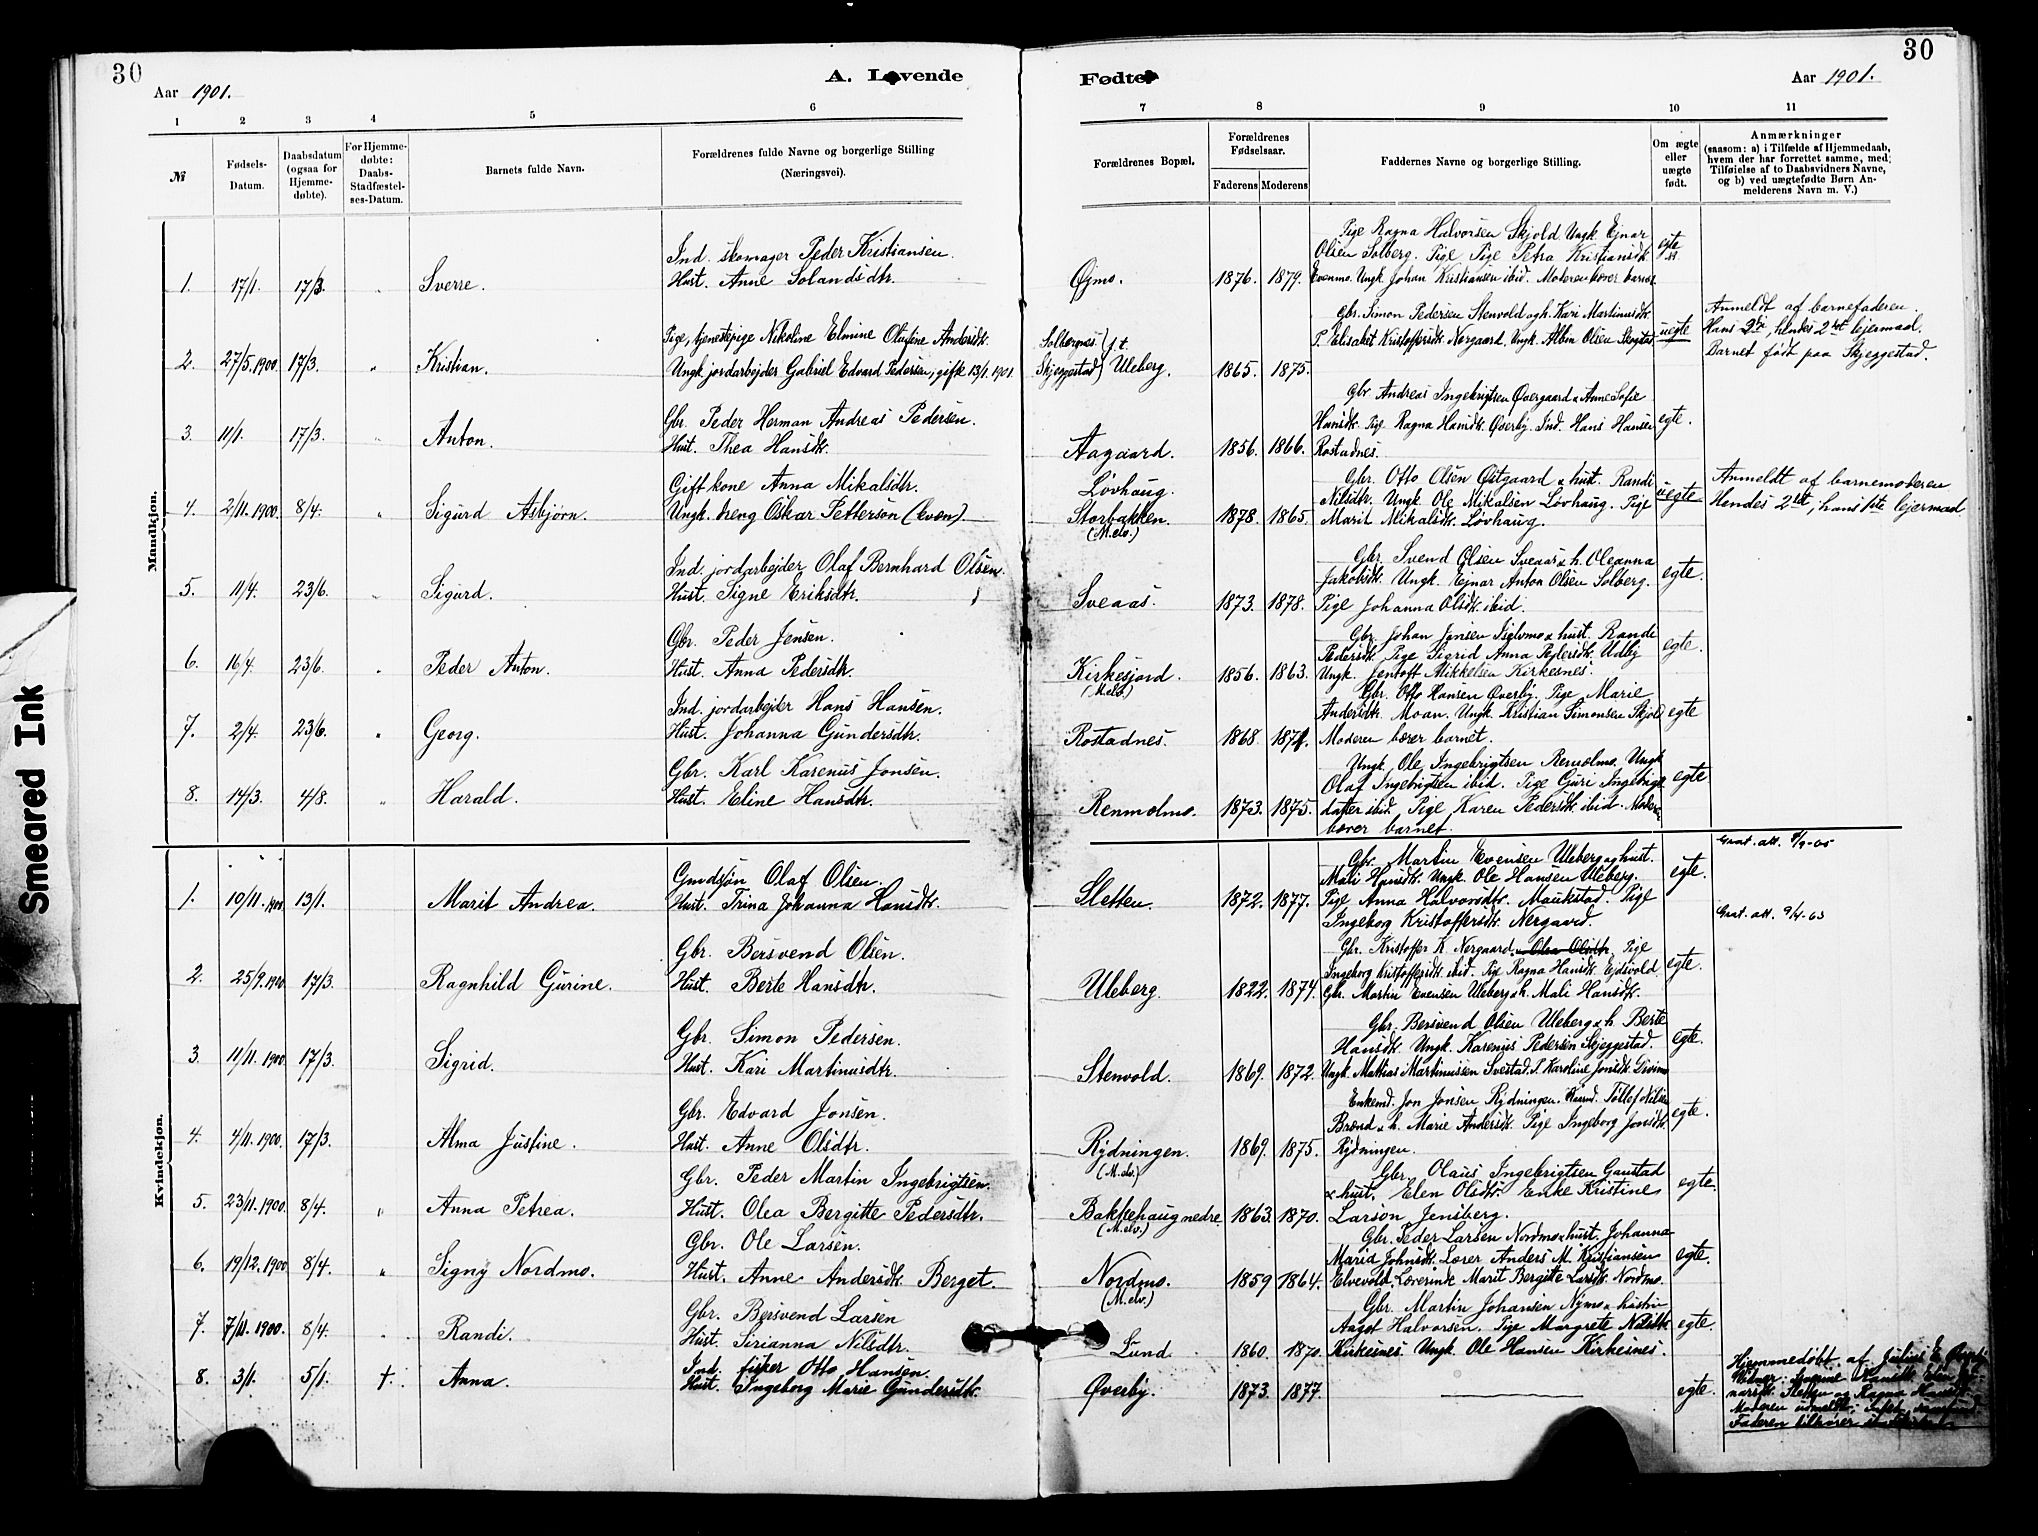 30
A. Levende
Aar 1901.
1 2 3 4 5 6
№
Fødsels-Datum.
Daabsdatum (ogsaa for Hjemmedøbte).
For Hjemmedøbte: Daabs-Stadfæstelses-Datum.
Barnets fulde Navn.
Forældrenes fulde Navne og borgerlige Stilling
(Næringsvei).
Mandkjøn.
Ind. skomager Peder Kristiansen.
1. 17/1. 17/3. " Sverre. Hust. Anne Solandsdtr.
Pige, tjenestepige Nikoline Elmine Olufine Andersdtr.
2. 27/5.1900. 17/3. " Kristian. Ungk. jordarbejder Gabriel Edvard Pedersen, gifte 13/1. 1901.
Gbr. Peder Herman Andreas Pedersen.
3. 11/1. 17/3. " Anton. Hust. Thea Hansdtr.
Gift kone Anna Mikalsdtr.
4. 2/11.1900. 8/4. " Sigurd Asbjørn. Ungk. dreng Oskar Petterson (kvæn)
Ind. jordarbejder Olaf Bernhard Olsen.
5. 11/4. 23/6. " Sigurd. Hust. Signe Eriksdtr.
Gbr. Peder Jensen.
6. 16/4. 23/6. " Peder Anton. Hust. Anna Pedersdtr.
Ind. jordarbejder Hans Hansen.
7. 2/4. 23/6. " Georg. Hust. Johanna Gundersdtr.
Gbr. Karl Karenus Jonsen.
8. 14/3. 4/8. " Harald. Hust. Eline Hansdtr.
Kvindekjøn.
Gmdsjøn Olaf Olsen.
1. 10/11.1900 13/1. Marit Andrea. Hust. Trina Johanna Hansdtr.
Gbr. Bersvend Olsen.
2. 25/9.1900 17/3. Ragnhild Gurine. Hust. Berte Hansdtr.
Gbr. Simon Pedersen.
3. 11/11.1900. 17/3. Sigrid. Hust. Kari Martinusdtr.
Gbr. Edvard Jonsen.
4. 4/11.1900. 17/3. Alma Justine. Hust. Anne Olsdtr.
Gbr. Peder Martin Ingebrigtsen.
5. 23/11.1900. 8/4. " Anna Petrea. Hust. Olea Bergitte Pedersdtr.
Gbr. Ole Larsen.
6. 19/12.1900 8/4. " Signy Nordmo. Hust. Anne Andersdtr. Berget.
Gbr. Bersvend Larsen
7. 7/11.1900. 8/4. " Randi. Hust. Sirianna Nilsdtr.
Ind. fisker Otto Hansen.
8. 3/1. 5/1. †. Anna. Hust. Ingeborg Marie Gundersdtr.
30
Fødte
Aar 1901.
7 8 9 10 11
Forældrenes Bopæl.
Forældrenes Fødselsaar.
Faderens Moderens
Faddernes Navne og borgerlige Stilling.
Om ægte eller uægte født.
Anmærkninger
(saasom: a) i Tilfælde af Hjemmedaab,
hvem der har forrettet samme, med
Tilføielse af to Daabsvidners Navne,
og b) ved uægtefødte Børn Anmelderens Navn m. V.)
Pige Ragna Halvorsen Skjold Ungk. Ejnar
Olsen Solberg. Pige Pige Petra Kristiansdtr. egte
Øjmo. 1876. 1879. Evenmo. Ungk. Johan Kristiansen ibid. Moderen bærer barnet
Gbr. Simon Pedersen Stenvold og h. Kari Martinusdtr.
Anmeldt af barnefaderen.
Solbergnes. P. Elisabet Kristoffersdtr. Nergaard. Ungk. Albin Olsen Skogstad uegte Hans 2de hendes 2det lejermaal.
Skjeggestad f.t. Uleberg. 1865. 1875. Barnet født paa Skjeggestad.
Gbr. Andreas Ingebrigtsen Øvergaard & Anne Sofie
Hansdtr. Pige Ragna Hansdtr. Øverby. Ind. Hans Hansen egte.
Aagaard. 1856. 1866. Rostadnes.
Løvhaug. Gbr. Otto Olsen Østgaard & hust. Randi Anmeldt af barnemoderen
Nilsdtr. Ungk. Ole Mikalsen Løvhaug. Pige uegte Hendes 2det, hans 1ste lejermaal
Storbakken. 1878. 1865. Marit Mikalsdtr. Løvhaug.
(M.elv.)
Gbr. Svend Olsen Sveaas & h. Oleanna
Jakobsdtr. Ungk. Ejnar Anton Olsen Solberg. egte.
Sveaas. 1873. 1878. Pige Johanna Olsdtr. ibid.
Gbr. Johan Jensen & hust. Randi
Pedersdtr. Pige Sigrid Anna Pedersdtr. Udby egte.
Kirkesjord. 1856. 1863. Ungk. Jentoft Mikkelsen Kirkesnes.
(M.elv.)
Gbr. Otto Hansen Øverby. Pige Marie
Andersdtr. Moan. Ungk. Kristian Simonsen Skjold egte
Rostadnes. 1868 1871. Moderen bærer barnet.
Ungk. Ole Ingebrigtsen Renmolmo. Ungk.
Olaf Ingebrigtsen ibid. Pige Guri Ingebrigts- egte
Renmolmo. 1873. 1875. datter ibid. Pige Karen Pedersdtr. ibid. Moderen
bærer barnet.
Grat. att. 9/9-05
Gbr. Martin Evensen Uleberg og hust.
Mali Hansdtr. Ungk. Ole Hansen Uleberg. egte.
Sletten. 1872. 1877. Pige Anna Halvorsdtr. Maukstad. Pige
Ingeborg Kristoffersdtr. Nergaard.
Grat. att. 9/4-03
Gbr. Kristoffer K. Nergaard & Olea Olsdtr. Pige
Ingeborg Kristoffersdtr. ibid. Pige Ragna Hansdtr. Ejdsvold egte.
Uleberg. 1822. 1874. Gbr. Martin Evensen Uleberg & h. Mali Hansdtr.
Gbr. Bersvend Olsen Uleberg & h. Berte
Hansdtr. Ungk. Karenius Pedersen Skjeggestad. egte.
Stenvold. 1869. 1872. Ungk. Mathias Martinussen Svestad. P. Karoline Jonsdtr.
Enkemd. Jon Jonsen Rydningen. Tollef Nilsen
Brænd & h. Marie Andersdtr. Pige Ingeborg Jonsdtr. egte.
Rydningen. 1869. 1875. Rydningen.
(M.elv.)
Gbr. Olaus Ingebrigtsen Gaustad
& hust. Elen Olsdtr. Enke Kristine egte.
Bakkehaug nedre 1863. 1870. Larson Jensberg.
(M.elv.)
Gbr. Peder Larsen Nordmo & hust. Johanna
Maria Johnsdtr. Lærer Anders M. Kristiansen egte.
Nordmo. 1859 1864. Elvevold. Lærerinde Marit Bergitte Larsdtr. Nordmo.
(M.elv.)
Gbr. Martin Johansen Nymo & hustru
Aagot Halvorsen. Pige Margrete Nilsdtr. egte.
Lund 1860. 1870. Kirkesnes Ungk. Ole Hansen Kirkesnes.
Øverby. 1873. 1877. egte.
Hjemmedøbt af Julius E. Øverby
Sletten og Ragna Hansdtr.
Moderen udmeldt
Faderen tilhører statskirken.
Smeared Ink